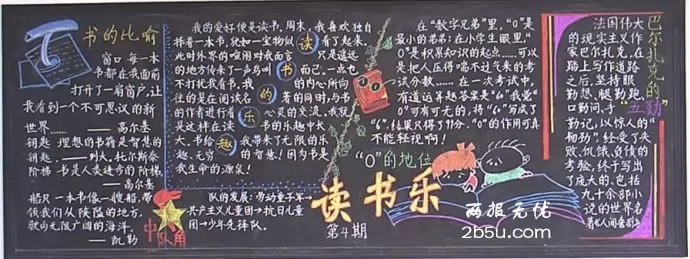 书的比喻
窗口 每一本
书都在我面前
打开了一扇窗户，让
我看到一个不可思议的新
世界……
——高尔基
钥匙 理想的书籍是智慧的
钥匙。——列夫。托尔斯泰
阶梯 书是人类进步的阶梯
——高尔基
船只 一本书像一艘船，带
领我们从狭隘的地方，
驶向无限广阔的海洋。
——凯勒
我的爱好便是读书，周末，我喜欢独自
捧着一本书，犹如一宝物似 看了起来，
此时外界的喧闹对我而言 只是遥远
的地方传来了一声鸟叫 而已，一点也
不打扰我看书，我 的内心所向
往的是在阅读名 著的同时，与书
的作者进行着 心灵的交流，我就
是这样在读 书的乐趣中长
大，书给 我带来了无限的乐
趣，无穷 的智慧！因为书是
我生命的源泉！
读书的乐趣
中队角
队的发展：劳动童子军
共产主义儿童团→抗日儿童
团→少年先锋队。
在“数字兄弟”里，“0”是
最小的弟弟；在小学生眼里，“
0”是积累知识的起点……可以
是把人压得喘不过气来的考
试分数……在一次考试中，
有道运算题答案是“6”我觉“
0”可有可无的，将“6”写成了
“6”，结果只得了 分，“0”的作用可真
不能轻视啊！
“0”的地位
读书乐
第4期
巴尔扎克的“五勤”
法国伟大
的现实主义作
家巴尔扎克，在
踏上写作道路
之后，坚持眼
勤想、腿勤跑、
口勤问、手
勤记，以惊人的“
韧劲”，经受了失
败、饥饿、负债的
考验，终于写出
了庞大的、包括
九十余部小
说的世界名
著《人间喜剧》
两报无忧
2b5u.com